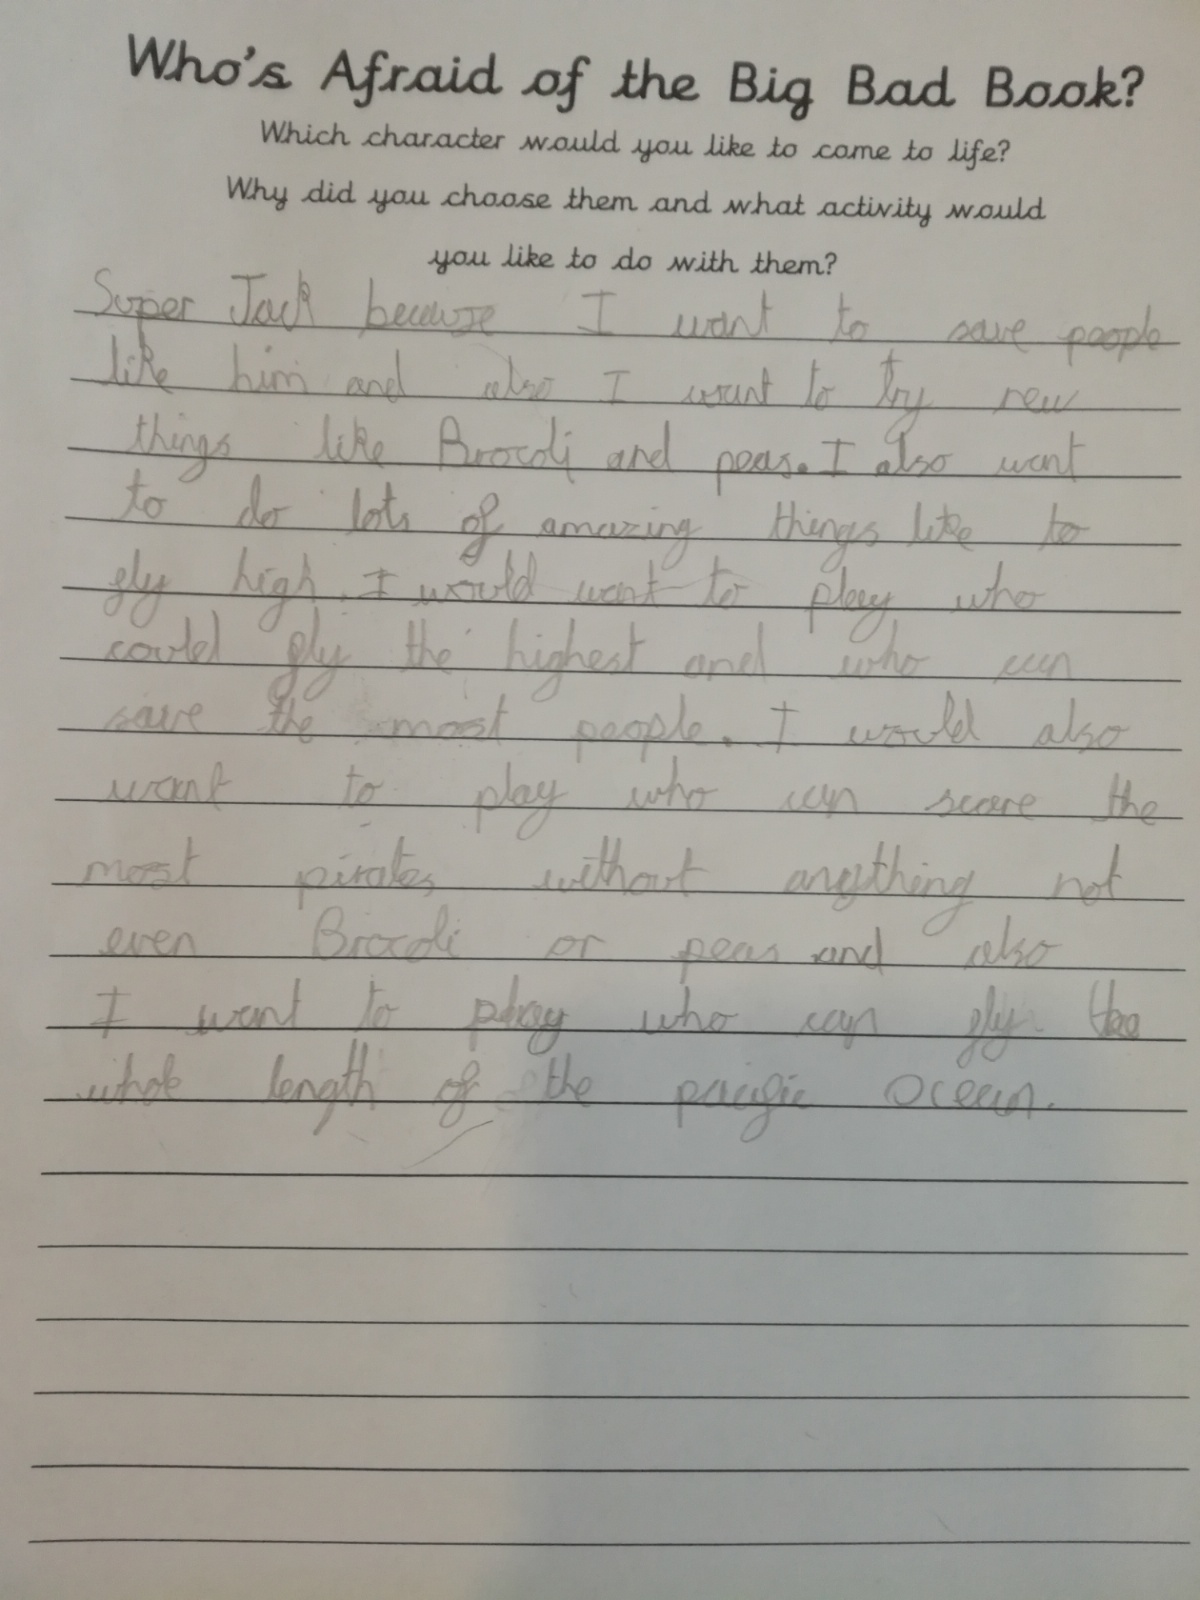 Who's Afraid of the Big Bad Book?
Which character would you like to come to life?
Why did you choose them and what activity would
you like to do with them?
Super Jack because I want to save people
like him and also I want to try new
things like Brocoli and peas. I also want
to do lots of amazing things like to
fly high. I would want to play who
could fly the highest and who can
save the most people. I would also
want to play who can scare the
most pirates without anything not
even Brocoli or peas and also
I want to play who can fly the
whole length of the pacific Ocean.